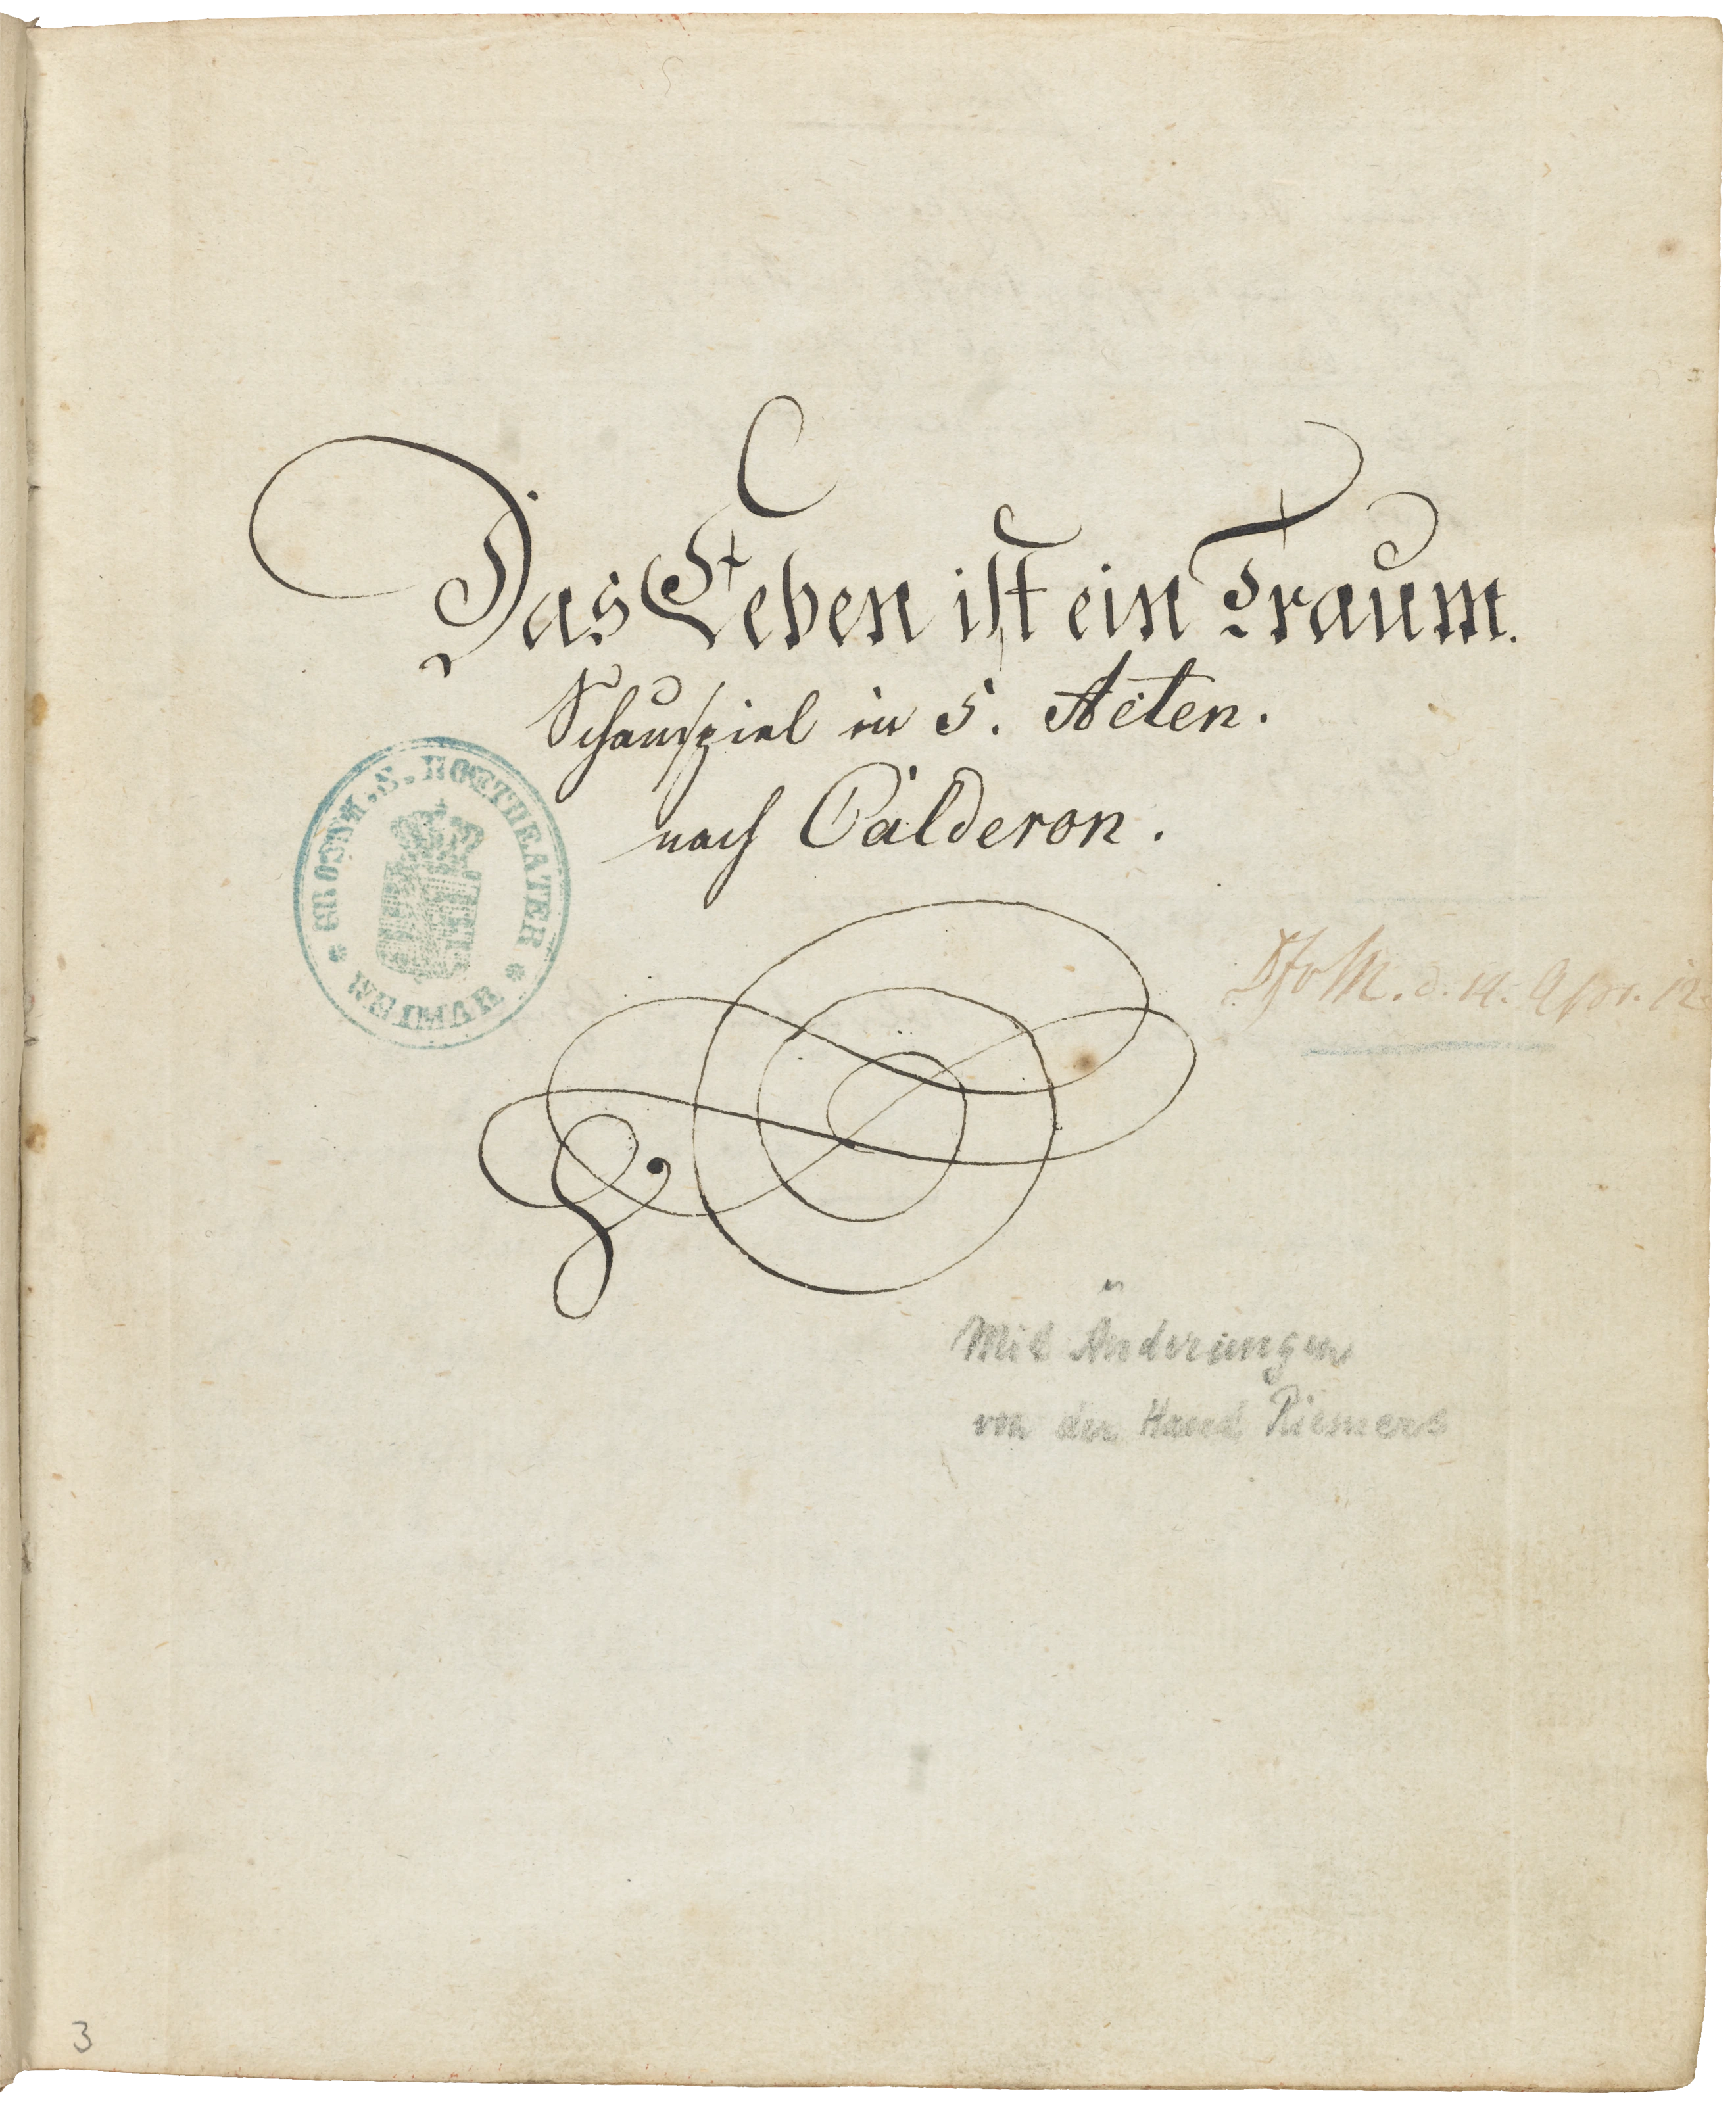 Das Leben ist ein Traum.
Schauspiel in 5. Acten.
nach Calderon.
GROSSH. S. HOFTHEATER
WEIMAR
d. 14. Apr. 12
Mit Änderungen
von der Hand Riemers
3